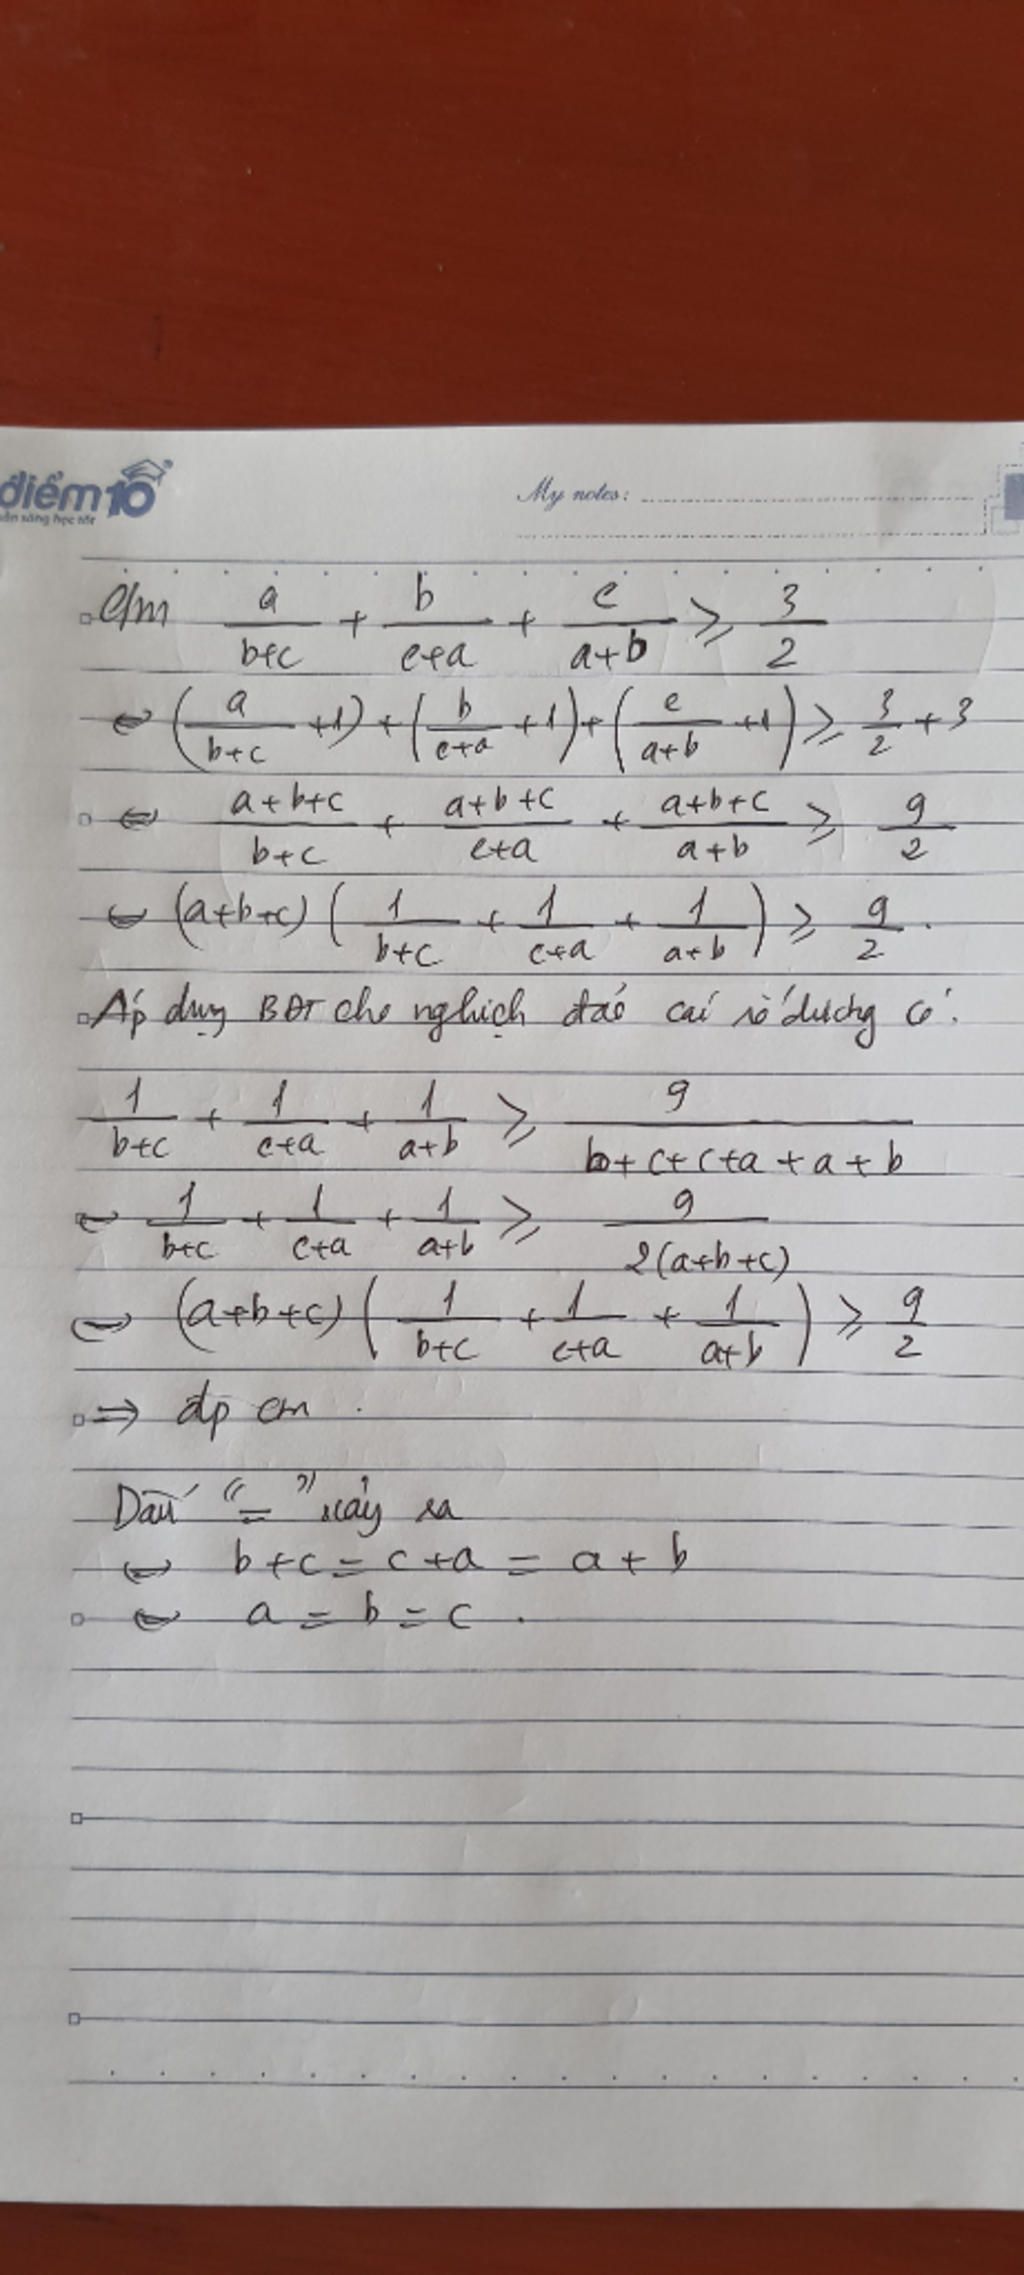 điểm10
sẵn sàng học tốt
My notes:
C/m a/(b+c) + b/(c+a) + c/(a+b) ≥ 3/2
⇔ (a/(b+c) +1) + (b/(c+a) +1) + (c/(a+b) +1) ≥ 3/2 + 3
⇔ (a+b+c)/(b+c) + (a+b+c)/(c+a) + (a+b+c)/(a+b) ≥ 9/2
⇔ (a+b+c) (1/(b+c) + 1/(c+a) + 1/(a+b)) ≥ 9/2 .
Áp dụng BĐT cho nghịch đảo các số dương có:
1/(b+c) + 1/(c+a) + 1/(a+b) ≥ 9/(b+c+c+a+a+b)
⇔ 1/(b+c) + 1/(c+a) + 1/(a+b) ≥ 9/(2(a+b+c))
⇔ (a+b+c) (1/(b+c) + 1/(c+a) + 1/(a+b)) ≥ 9/2
⇒ đpcm .
Dấu "=" xảy ra
⇔ b+c = c+a = a+b
⇔ a = b = c .